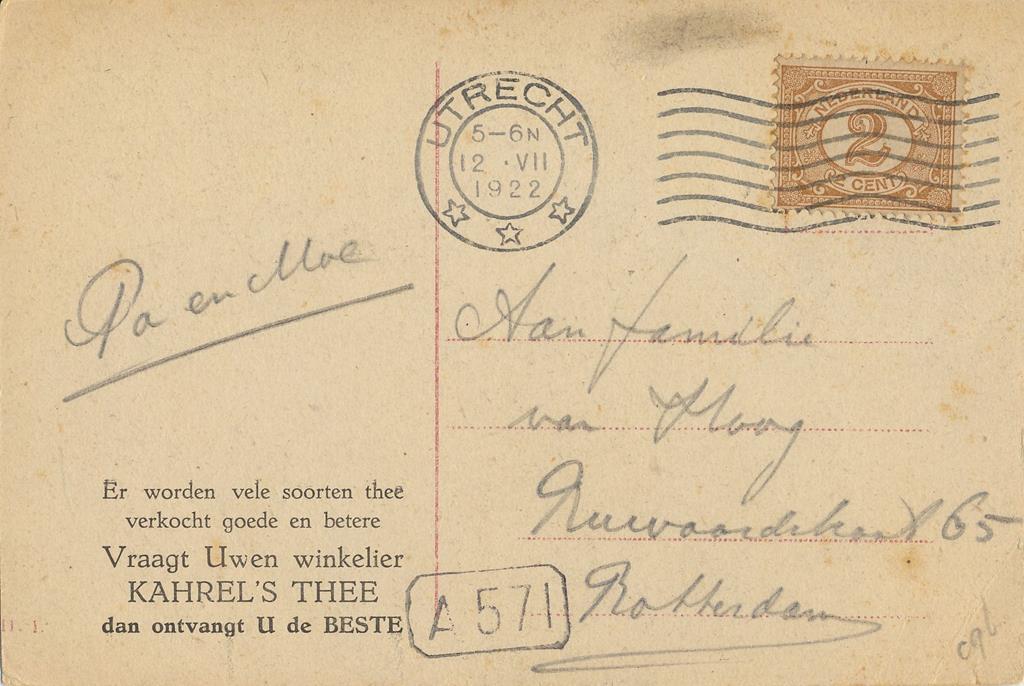 UTRECHT
5–6N
12 · VII
1922
NEDERLAND
2
CENT
Pa en Moe
Aan familie
van Hoog
65
Rotterdam
Er worden vele soorten thee
verkocht goede en betere
Vraagt Uwen winkelier
KAHREL'S THEE
dan ontvangt U de BESTE
A 571